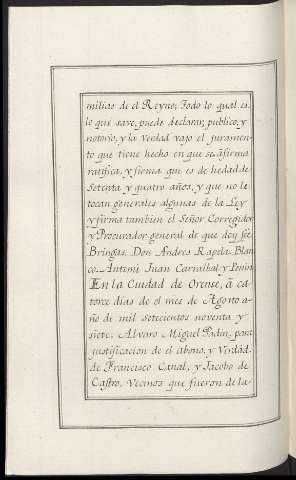 milias de el Reyno; Todo lo qual es
lo que save, puede declarar, publico, y
notorio, y la verdad vajo el juramen-
to que tiene hecho en que se afirma
ratifica, y firma qui es de hedad de
setenta y quatro años, y que no le
tocan generales algunas de la Ley
y firma tambien el Señor Corregidor
y Procurador general de que doy feé
Bringas. Don Andres Rapela. Blan-
co. Antemi Juan Carralbal, y Penin
En la Ciudad de Orense, á ca-
torce dias de el mes de Agosto a-
ño de mil setecientos noventa y
siete: Alvaro Miguel Padin, para
justificacion de el abono, y Verdad,
de Francisco Canal, y Jacobo de
Castro, Vecinos que fueron de la